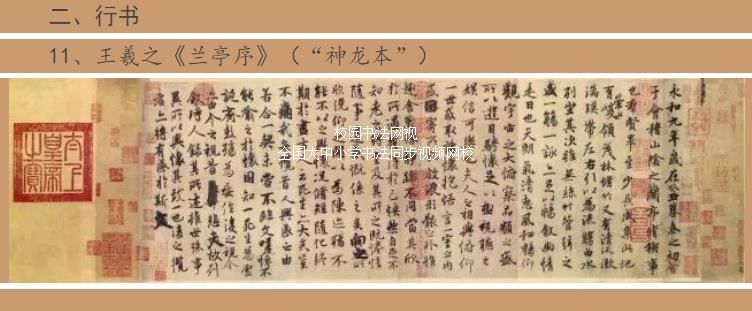 二、行书
11、王羲之《兰亭序》（“神龙本”）
永和九年歲在癸丑暮春之初會
于會稽山陰之蘭亭脩稧事
也群賢畢至少長咸集此地
有崇山峻領茂林脩竹又有清流激
湍暎帶左右引以為流觴曲水
列坐其次雖無絲竹管弦之
盛一觴一詠亦足以暢敘幽情
是日也天朗氣清惠風和暢仰
觀宇宙之大俯察品類之盛
所以遊目騁懷足以極視聽之
娛信可樂也夫人之相與俯仰
一世或取諸懷抱悟言一室之內
或因寄所託放浪形骸之外雖
趣舍萬殊靜躁不同當其欣
於所遇蹔得於己怏然自足不
知老之將至及其所之既惓情
隨事遷感慨係之矣向之所
欣俛仰之閒以為陳迹猶不
能不以之興懷況脩短隨化終
期於盡古人云死生亦大矣豈
不痛哉每攬昔人興感之由
若合一契未嘗不臨文嗟悼不
能喻之於懷固知一死生為虛
誕齊彭殤為妄作後之視今
亦由今之視昔悲夫故列
敘時人錄其所述雖世殊事
異所以興懷其致一也後之攬
者亦將有感於斯文
太上皇帝之寶
校园书法网视
全国大中小学书法同步视频网校